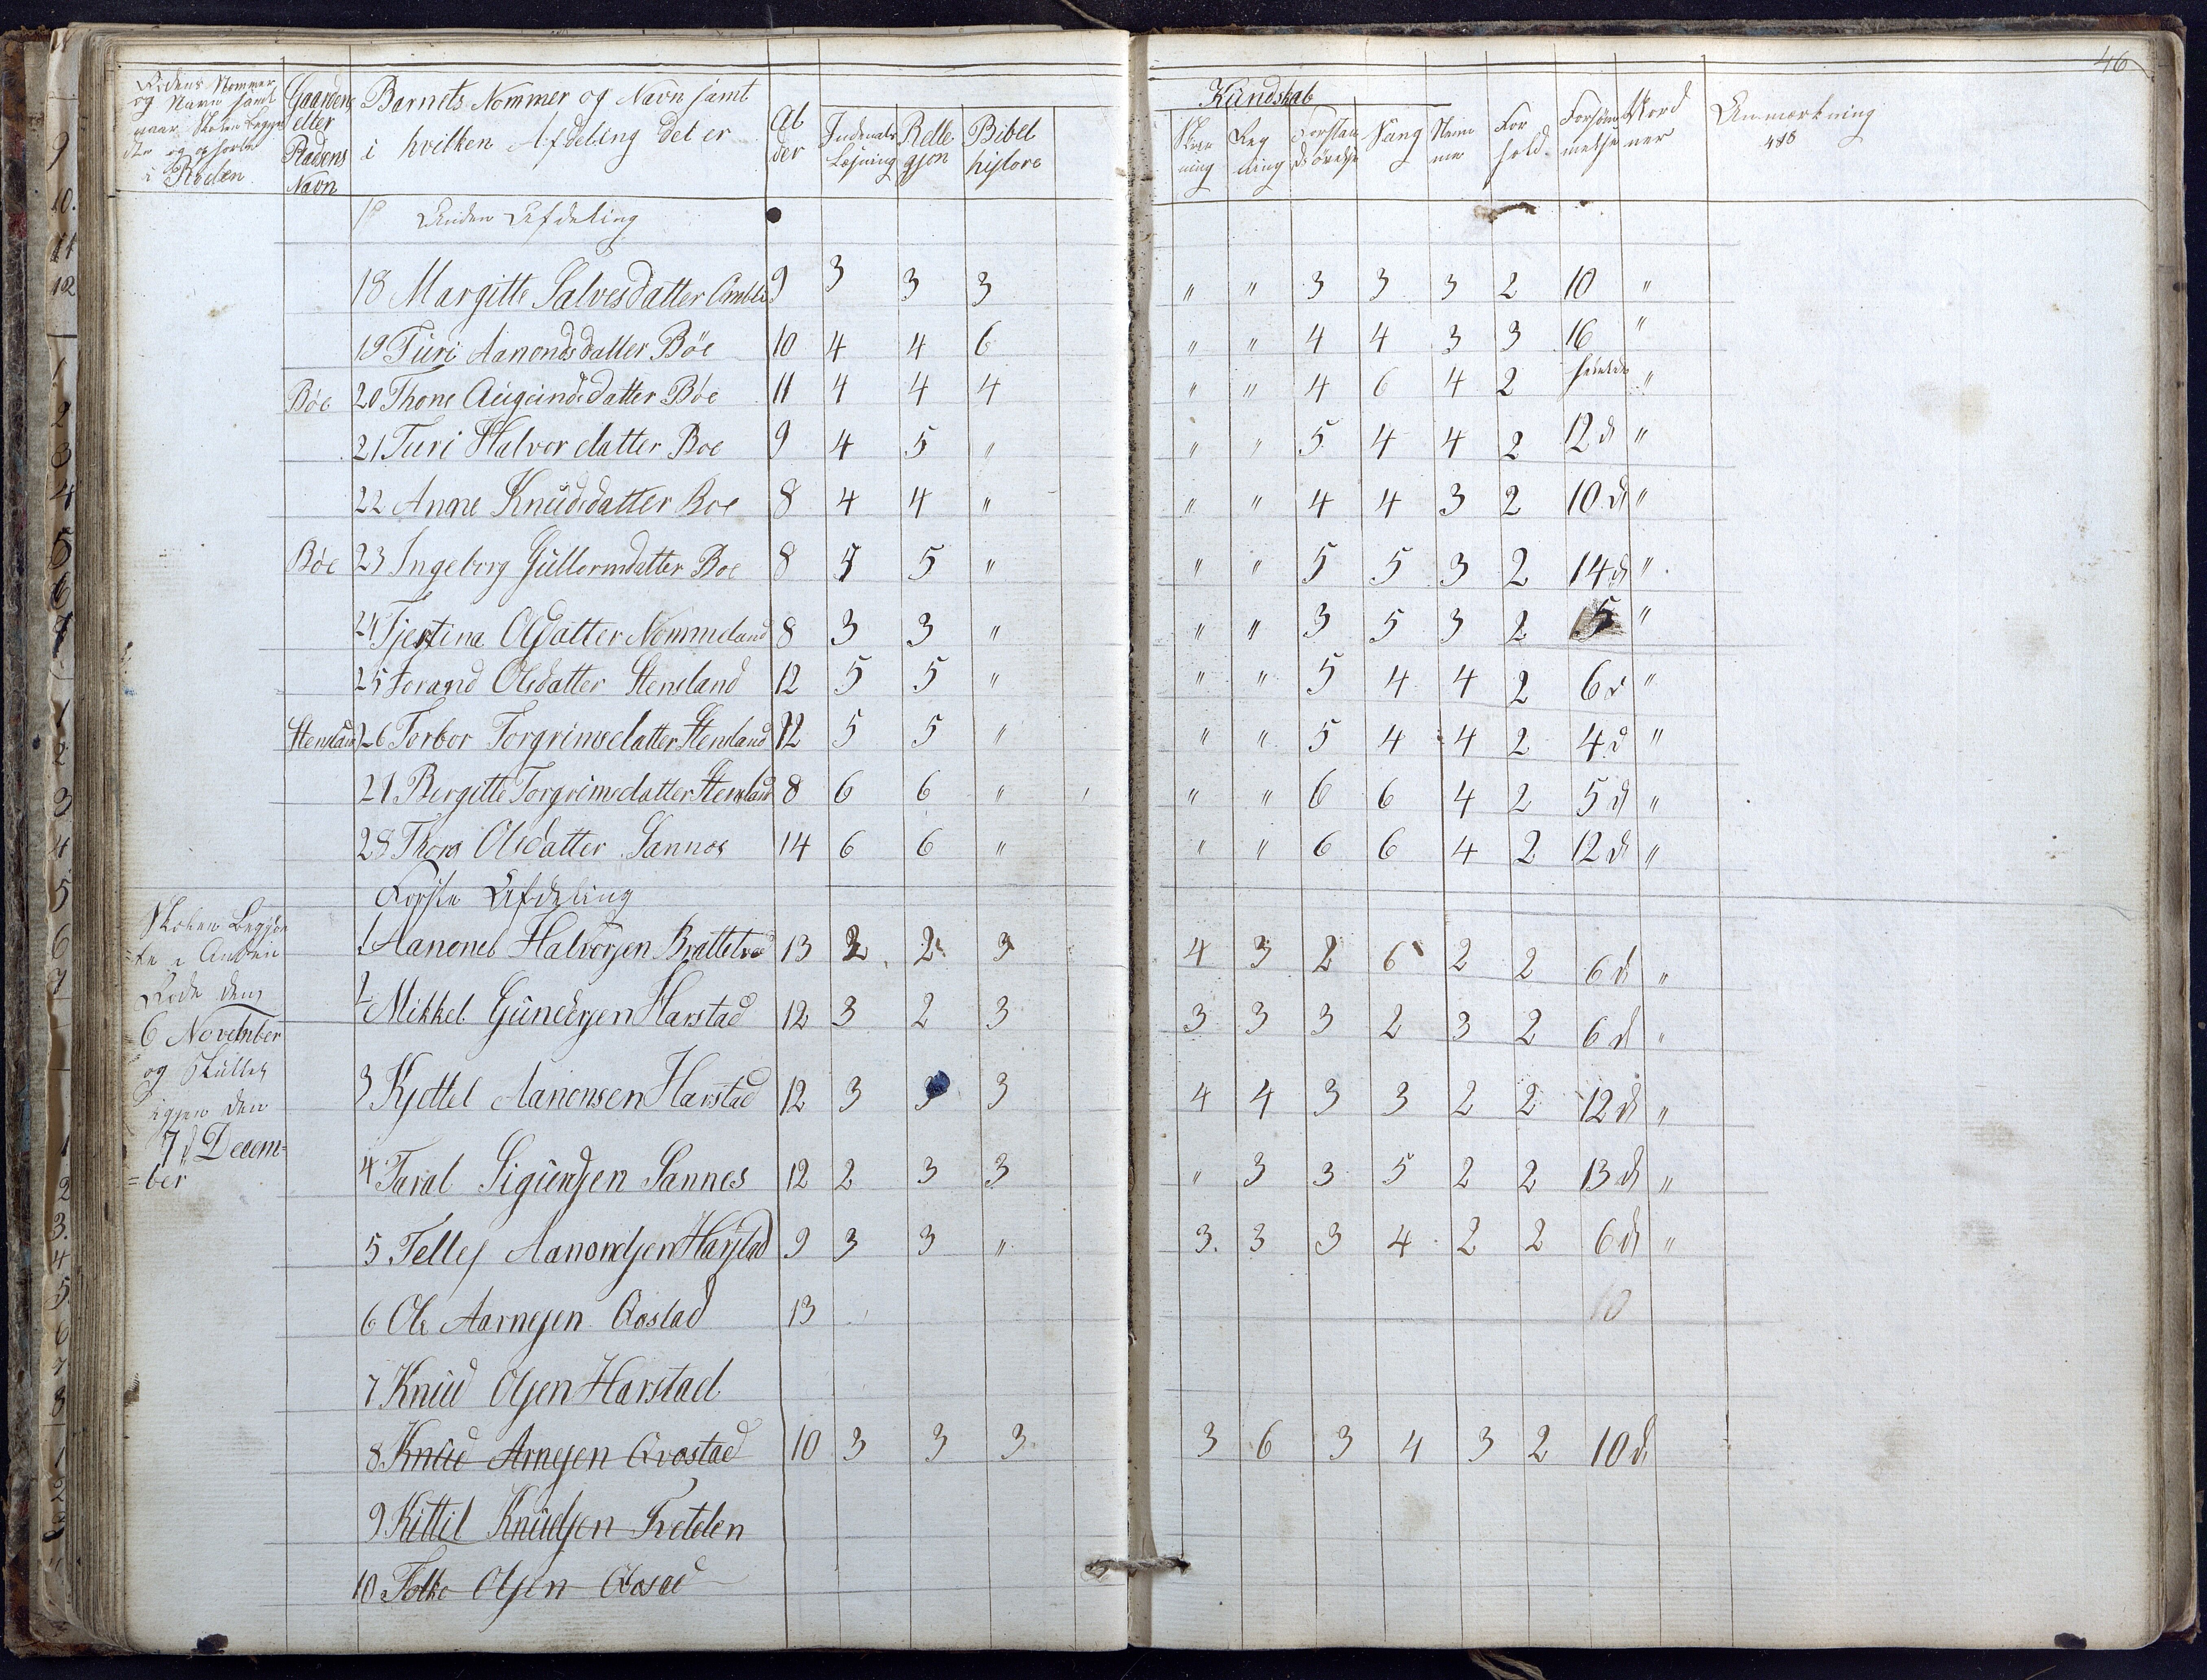 46
Rodens Nommer og Navn samt naar Skolen begyndte og ophørte i Roden
Gaardens eller Pladsens Navn
Barnets Nommer og Navn samt i hvilken Afdeling det er
Alder
Indenads Læsning
Rellegjon
Bibelhistore
Kundskab
Skrivning
Regning
Forstandsøvelse
Sang
Nemme
For hold
Forsømmelse
Nordner
Anmærkning
Anden Afdeling
18 Margitte Salvesdatter 9 3 3 3 " " 3 3 3 2 10 "
19 Turi Aanondsdatter Böe 10 4 4 6 " " 4 4 3 3 16 "
Böe 20 Thone Augundsdatter Böe 11 4 4 4 " " 4 6 4 2 "
21 Turi Halvordatter Boe 9 4 5 " " " 5 4 4 2 12 d "
22 Anne Knudsdatter Boe 8 4 4 " " " 4 4 3 2 10 d "
Böe 23 Ingeborg Gullormdatter Boe 8 5 " " " 5 5 3 2 14 d "
24 Tjestina Olsdatter Nommeland 8 3 3 " " " 3 5 3 2 15 "
25 Torand Olsdatter Stensland 12 5 5 " " " 5 4 4 2 6 d "
Stensland 26 Torbor Torgrimsdatter Stensland 12 5 5 " " " 5 4 4 2 4 d "
27 Bergitte Torgrimsdatter Stensland 8 6 6 " " " 6 6 4 2 5 d "
28 Thora Olsdatter Sannes 14 6 6 " " " 6 6 4 2 12 d "
Forste Afdeling
Skolen Begyn
=te i Anden
Rode den
6 November
og Sluttet
igjen den
7 d Decem=
=ber
1 Aanond Halvorsen Brattelrud 13 2 2 3 4 3 2 6 2 2 6 d "
2 Mikkel Gundersen Harstad 12 3 2 3 3 3 3 2 3 2 6 d "
3 Kjettel Aanonsen Harstad 12 3 3 3 4 4 3 3 2 2 12 d "
4 Taral Sigurdsen Sannes 12 2 3 3 " 3 3 5 2 2 13 d "
5 Tellef Aanondsen Harstad 9 3 3 " 3. 3 3 4 2 2 6 d "
6 Ole Aarnesen Qostad 13 10
7 Knud Olsen Harstad
8 Knud Arnesen Qvostad 10 3 3 3 3 6 3 4 3 2 10 d
9 Kittil Knudsen Tvetelen
10 Folke Olsen Qosad